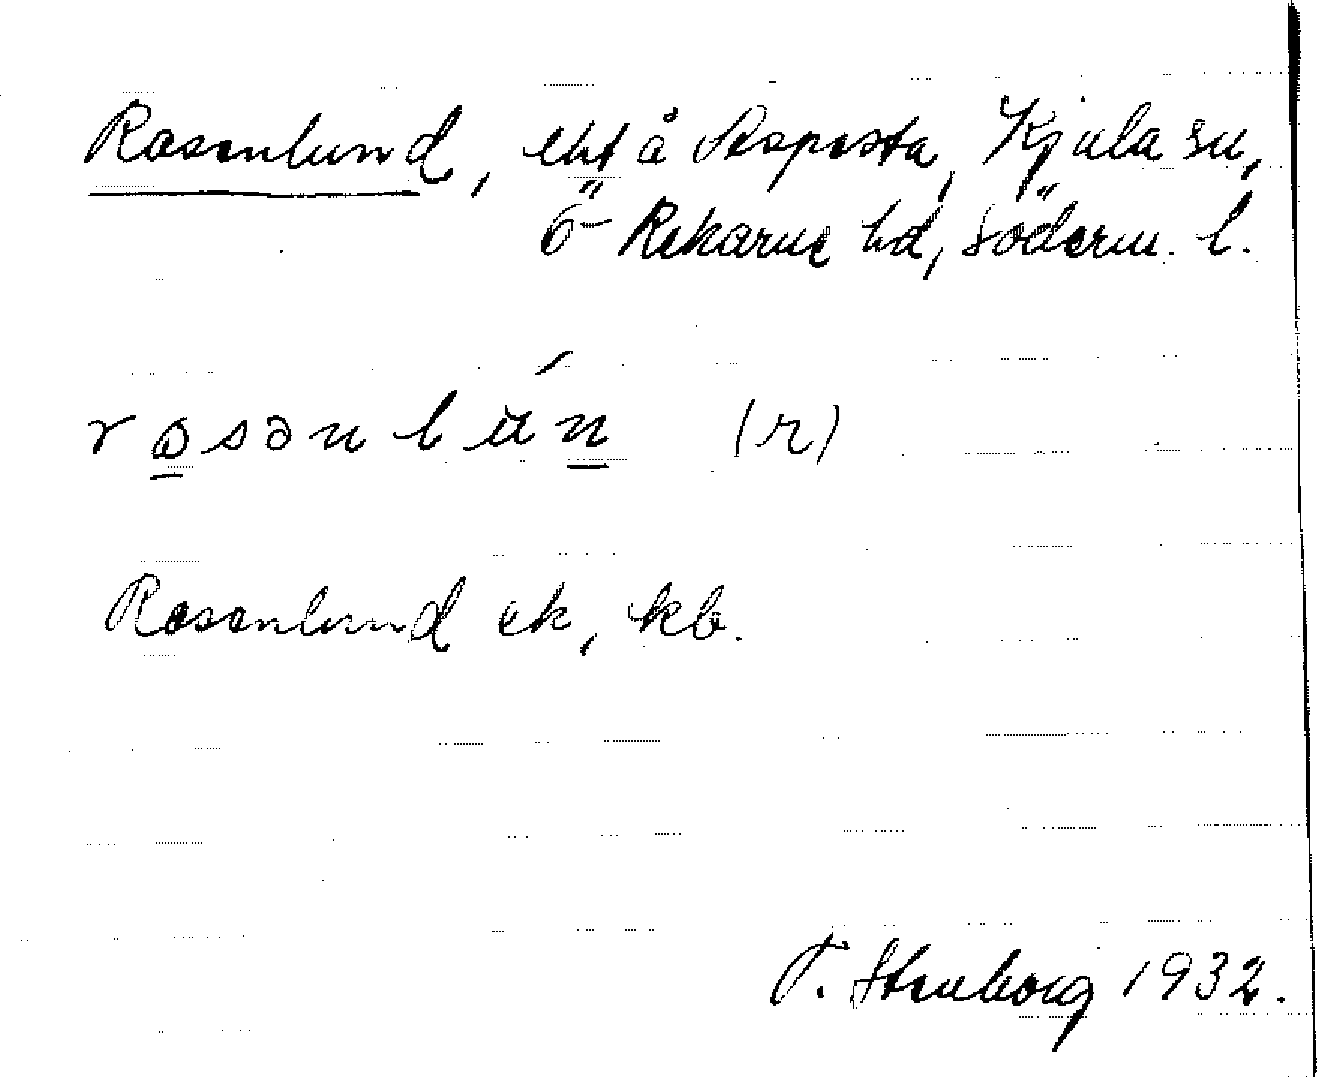 Rosenlund, lht å Asposta, Kjula sn,
Ö- Rekarne hd, Söderm. l.
rosənlún (r)
Rosenlund ek, kb.
T. Stenborg 1932.